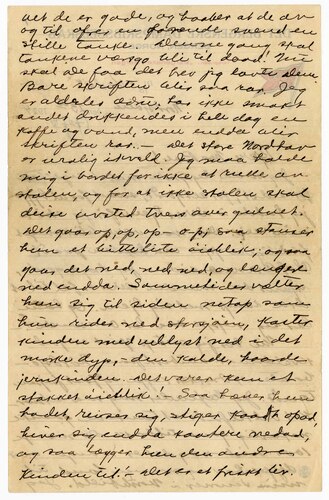 vet de er gode, og haaber at de av
og til ofrer en svend en
stille tanke. Denne gang skal
tankene værgo til
skal de faa det brev jeg lovte dem.
Bare skriften blir saa rar. Jeg
er aldeles ædru, har ikke smakt
andet drikkendes i hele dag en
kaffe og vand, men endda blir
skriften rar. — Det store Nordhav
er urolig ikveld. Jeg maa holde
mig i bordet for ikke at rulle av
stolen, og for at ikke stolen skal
deise uvstad tvers over gulvet.
Det gaar op, op, op — op; saa stanser
hun et bitte lite øieblik, og saa
gaar det ned, ned, ned, og længer
ned endda. Sommetider velter
hun sig til siden netop som
hun rider ned storsjøen, kaster
kinden med velyst ned i det
mørke dyp, — den kalde, haarde
jernkinden. Det varer kun et
stakket øieblik! — Saa hæver hun
hodet, reiser sig, stiger opad,
hiver sig endda kaatere nedad,
og saa lægger hun den andre
kinden til. — Det er et friskt liv.